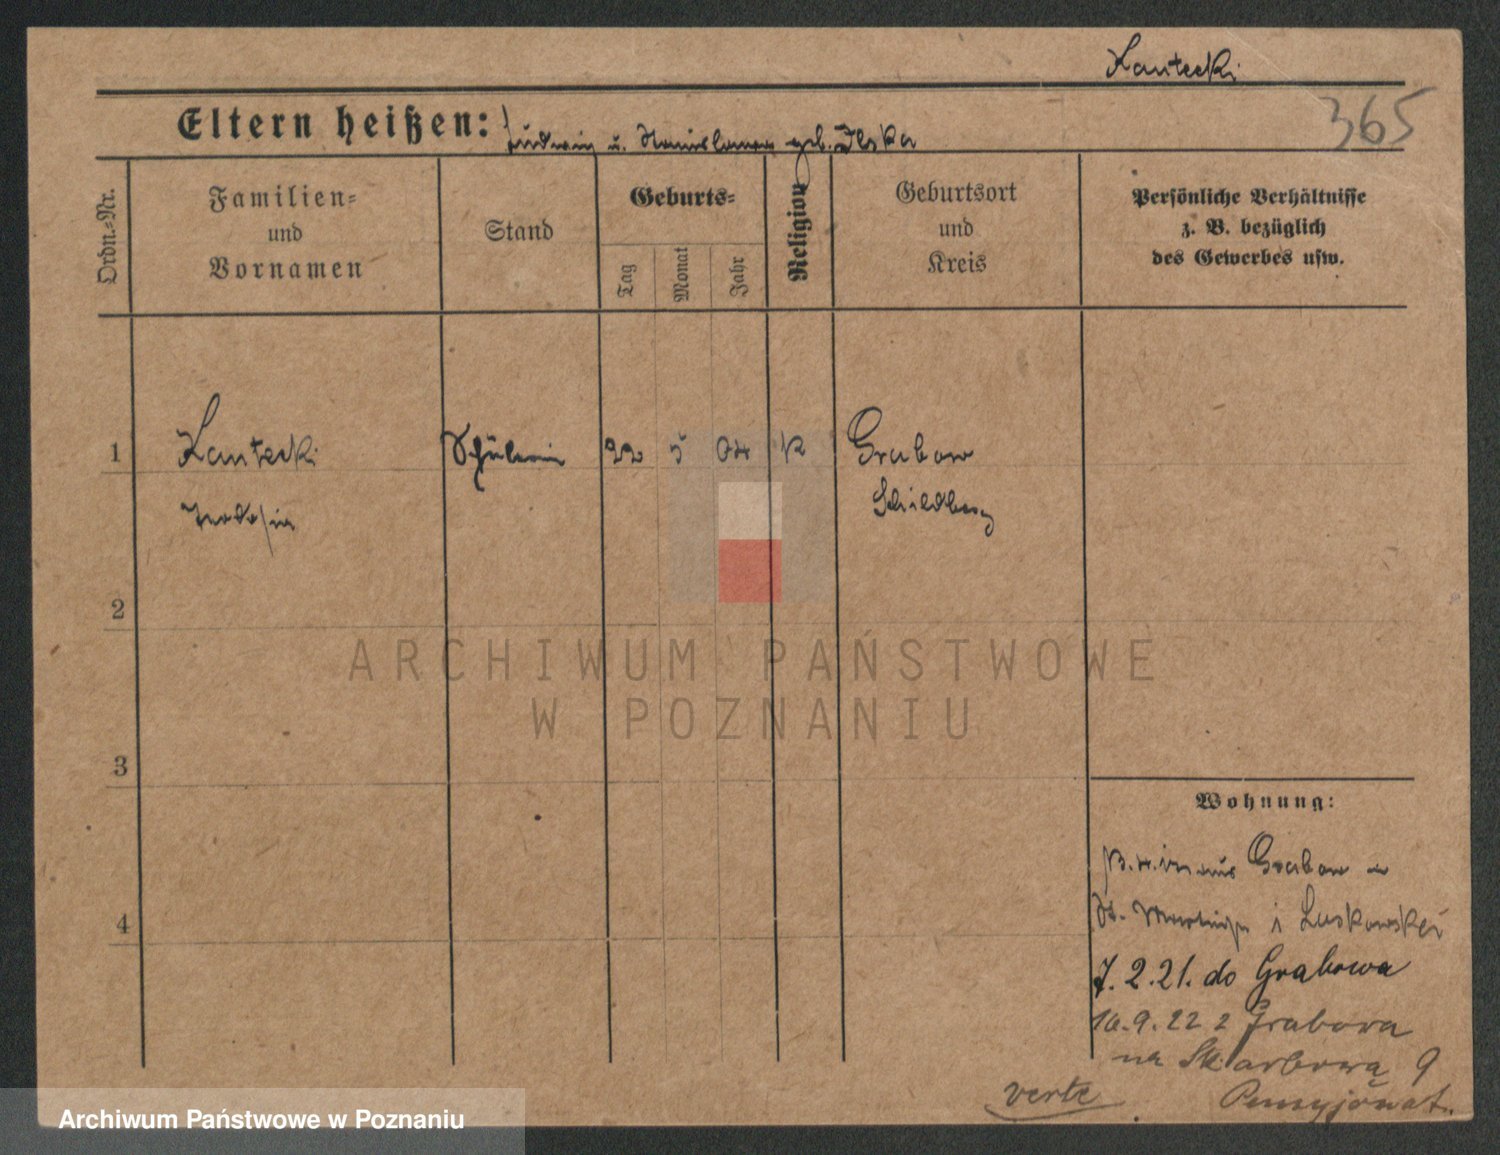 Kantecki
365
Eltern heißen: Ludwig u. Stanislawa geb. Ilska
Ordn.-Nr.
Familien-
und
Vornamen
Stand
Geburts-
Tag
Monat
Jahr
Religion
Geburtsort
und
Kreis
Persönliche Verhältnisse
z. B. bezüglich
des Gewerbes usw.
1
Kantecki
Schülerin
22
5
04
K
Grabow
Schildberg
2
3
4
Wohnung:
aus Grabow
St. Martin i Laskowskei
7.2.21. do Grabowa
10.9.22 z Grabowa
na Skarbowa 9
Pensyjonat.
verte
ARCHIWUM PAŃSTWOWE
W POZNANIU
Archiwum Państwowe w Poznaniu